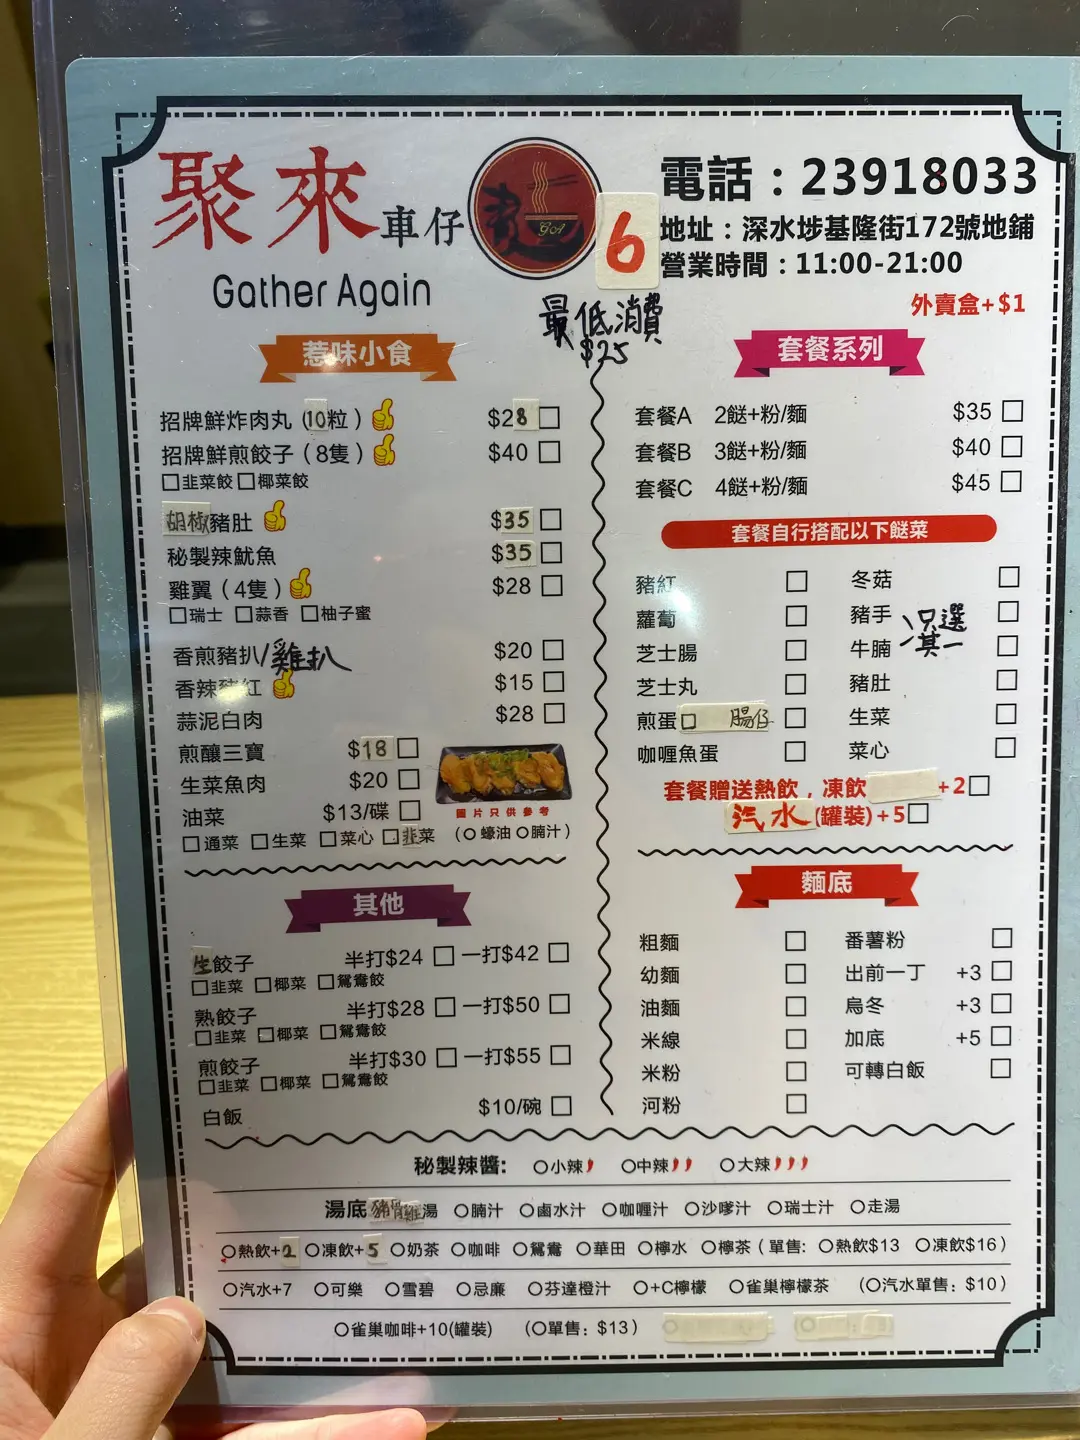 聚來車仔
Gather Again
GA
6
電話：23918033
地址：深水埗基隆街172號地鋪
營業時間：11:00-21:00
外賣盒+$1
最低消費
$25
惹味小食
招牌鮮炸肉丸（10粒） $28 □
招牌鮮煎餃子（8隻） $40 □
□韭菜餃 □椰菜餃
胡椒豬肚 $35 □
秘製辣魷魚 $35 □
雞翼（4隻） $28 □
□瑞士 □蒜香 □柚子蜜
香煎豬扒/雞扒 $20 □
香辣豬紅 $15 □
蒜泥白肉 $28 □
煎釀三寶 $18 □
生菜魚肉 $20 □
油菜 $13/碟 □
圖片只供參考
□通菜 □生菜 □菜心 □韭菜 （○蠔油 ○腩汁）
其他
生餃子 半打$24 □ 一打$42 □
□韭菜 □椰菜 □鴛鴦餃
熟餃子 半打$28 □ 一打$50 □
□韭菜 □椰菜 □鴛鴦餃
煎餃子 半打$30 □ 一打$55 □
□韭菜 □椰菜 □鴛鴦餃
白飯 $10/碗 □
套餐系列
套餐A 2餸+粉/麵 $35 □
套餐B 3餸+粉/麵 $40 □
套餐C 4餸+粉/麵 $45 □
套餐自行搭配以下餸菜
豬紅 □ 冬菇 □
蘿蔔 □ 豬手 □
芝士腸 □ 牛腩 □
只選
其一
芝士丸 □ 豬肚 □
煎蛋□ 腸仔 □ 生菜 □
咖喱魚蛋 □ 菜心 □
套餐贈送熱飲，凍飲 +2□
汽水(罐裝)+5□
麵底
粗麵 □ 番薯粉 □
幼麵 □ 出前一丁 +3 □
油麵 □ 烏冬 +3 □
米線 □ 加底 +5 □
米粉 □ 可轉白飯 □
河粉 □
秘製辣醬: ○小辣 ○中辣 ○大辣
湯底 豬骨雞湯 ○腩汁 ○鹵水汁 ○咖喱汁 ○沙嗲汁 ○瑞士汁 ○走湯
○熱飲+2 ○凍飲+5 ○奶茶 ○咖啡 ○鴛鴦 ○華田 ○檸水 ○檸茶（單售: ○熱飲$13 ○凍飲$16）
○汽水+7 ○可樂 ○雪碧 ○忌廉 ○芬達橙汁 ○+C檸檬 ○雀巢檸檬茶 （○汽水單售: $10）
○雀巢咖啡+10(罐裝) （○單售: $13）